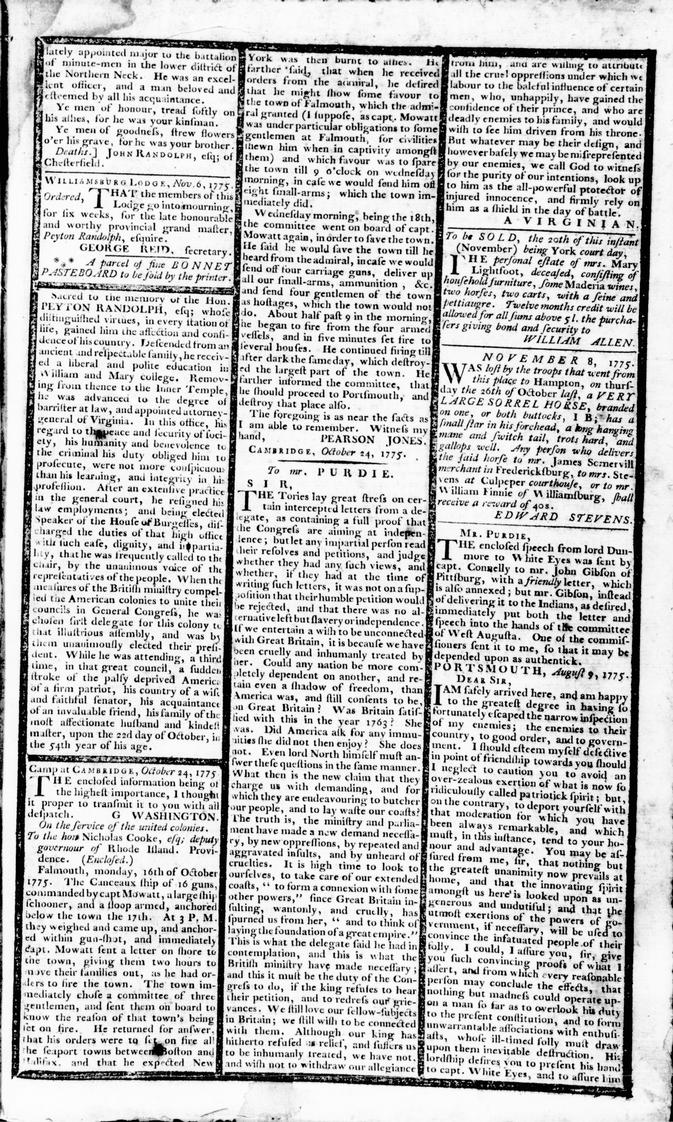 lately appointed major to the battalion
of minute-men in the lower district of
the Northern Neck. He was an excel-
lent officer, and a man beloved and
esteemed by all his acquaintance.
Ye men of honour, tread softly on
his ashes, for he was your kinsman.
Ye men of goodness, strew flowers
o'er his grave, for he was your brother.
Deaths.] JOHN RANDOLPH, esq; of
Chesterfield.
WILLIAMSBURG LODGE, Nov. 6, 1775.
Ordered, THAT the members of this
Lodge go into mourning,
for six weeks, for the late honourable
and worthy provincial grand master,
Peyton Randolph, esquire.
GEORGE REID, secretary.
*** A parcel of fine BONNET
PASTEBOARD to be sold by the printer.
Sacred to the memory of the Hon.
PEYTON RANDOLPH, esq; whose
distinguished virtues, in every station of
life, gained him the affection and confi-
dence of his country. Descended from an
ancient and respectable family, he receiv-
ed a liberal and polite education in
William and Mary college. Remov-
ing from thence to the Inner Temple,
he was advanced to the degree of
barrister at law, and appointed attorney-
general of Virginia. In this office, his
regard to the peace and security of soci-
ety, his humanity and benevolence to
the criminal his duty obliged him to
prosecute, were not more conspicuous
than his learning, and integrity in his
profession. After an extensive practice
in the general court, he resigned his
law employments; and being elected
Speaker of the House of Burgesses, dis-
charged the duties of that high office
with such ease, dignity, and impartia-
lity, that he was frequently called to the
chair, by the unanimous voice of the
representatives of the people. When the
measures of the British ministry compel-
led the American colonies to unite their
councils in General Congress, he was
chosen first delegate for this colony to
that illustrious assembly, and was by
them unanimously elected their presi-
dent. While he was attending, a third
time, in that great council, a sudden
stroke of the palsy deprived America
of a firm patriot, his country of a wise
and faithful senator, his acquaintance
of an invaluable friend, his family of the
most affectionate husband and kindest
master, upon the 22d day of October, in
the 54th year of his age.
Camp at CAMBRIDGE, October 24, 1775
THE enclosed information being of
the highest importance, I thought
it proper to transmit it to you with all
despatch. G WASHINGTON.
On the service of the united colonies.
To the hon Nicholas Cooke, esq; deputy
governour of Rhode Island. Provi-
dence. (Enclosed.)
Falmouth, monday, 16th of October
1775. The Canceaux ship of 16 guns,
commanded by capt Mowatt, a large ship
schooner, and a sloop armed, anchored
below the town the 17th. At 3 P. M.
they weighed and came up, and anchor-
ed within gun-shot, and immediately
capt. Mowatt sent a letter on shore to
the town, giving them two hours to
move their families out, as he had or-
ders to fire the town. The town im-
mediately chose a committee of three
gentlemen, and sent them on board to
know the reason of that town's being
set on fire. He returned for answer,
that his orders were to set on fire all
the seaport towns between Boston and
Halifax, and that he expected New
York was then burnt to ashes. He
farther said, that when he received
orders from the admiral, he desired
that he might show some favour to
the town of Falmouth, which the admi-
ral granted (I suppose, as capt. Mowatt
was under particular obligations to some
gentlemen at Falmouth, for civilities
shewn him when in captivity amongst
them) and which favour was to spare
the town till 9 o'clock on wednesday
morning, in case we would send him off
eight small-arms; which the town im-
mediately did.
Wednesday morning, being the 18th,
the committee went on board of capt.
Mowatt again, in order to save the town.
He said he would save the town till he
heard from the admiral, in case we would
send off four carriage guns, deliver up
all our small-arms, ammunition, &c.
and send four gentlemen of the town
as hostages, which the town would not
do. About half past 9 in the morning,
he began to fire from the four armed
vessels, and in five minutes set fire to
several houses. He continued firing till
after dark the same day, which destroy-
ed the largest part of the town. He
farther informed the committee, that
he should proceed to Portsmouth, and
destroy that place also.
The foregoing is as near the facts as
I am able to remember. Witness my
hand, PEARSON JONES.
CAMBRIDGE, October 24, 1775.
To mr. PURDIE.
SIR,
THE Tories lay great stress on cer-
tain intercepted letters from a de-
legate, as containing a full proof that
the Congress are aiming at indepen
dence; but let any impartial person read
their resolves and petitions, and judge
whether they had any such views, and
whether, if they had at the time of
writing such letters, it was not on a sup-
position that their humble petition would
be rejected, and that there was no al-
ternative left but slavery or independence.
If we entertain a wish to be unconnected
with Great Britain, it is because we have
been cruelly and inhumanly treated by
her. Could any nation be more com-
pletely dependent on another, and re-
tain even a shadow of freedom, than
America was, and still consents to be,
on Great Britain? Was Britain satis-
fied with this in the year 1763? She
was. Did America ask for any immu-
nities she did not then enjoy? She does
not. Even lord North himself must an-
swer these questions in the same manner.
What then is the new claim that they
charge us with demanding, and for
which they are endeavouring to butcher
our people, and to lay waste our coasts?
The truth is, the ministry and parlia-
ment have made a new demand necessa-
ry, by new oppressions, by repeated and
aggravated insults, and by unheard of
cruelties. It is high time to look to
ourselves, to take care of our extended
coasts, "to form a connexion with some
other powers," since Great Britain in-
sulting, wantonly, and cruelly, has
spurned us from her, "and to think of
laying the foundation of a great empire."
This is what the delegate said he had in
contemplation, and this is what the
British ministry have made necessary;
and this it must be the duty of the Con-
gress to do, if the king refuses to hear
their petition, and to redress our grie-
vances. We still love our fellow-subjects
in Britain; we still wish to be connected
with them. Although our king has
hitherto refused us relief, and suffers us
to be inhumanly treated, we have not,
and wish not to withdraw our allegiance
from him, and are willing to attribute
all the cruel oppressions under which we
labour to the baleful influence of certain
men, who, unhappily, have gained the
confidence of their prince, and who are
deadly enemies to his family, and would
wish to see him driven from his throne.
But whatever may be their design, and
however basely we may be misrepresented
by our enemies, we call God to witness
for the purity of our intentions, look up
to him as the all-powerful protector of
injured innocence, and firmly rely on
him as a shield in the day of battle.
A VIRGINIAN.
To be SOLD, the 20th of this instant
(November) being York court day,
THE personal estate of mrs. Mary
Lightfoot, deceased, consisting of
household furniture, some Maderia wines,
two horses, two carts, with a seine and
pettiaugre. Twelve months credit will be
allowed for all sums above 5l. the purcha-
sers giving bond and security to
WILLIAM ALLEN.
NOVEMBER 8, 1775.
WAS lost by the troops that went from
this place to Hampton, on thurs-
day the 26th of October last, a VERY
LARGE SORREL HORSE, branded
on one, or both buttocks, I B; has a
small star in his forehead, a long hanging
mane and switch tail, trots hard, and
gallops well. Any person who delivers
the said horse to mr. James Somervill
merchant in Fredericksburg, to mrs. Ste-
vens at Culpeper courthouse, or to mr.
William Finnie of Williamsburg, shall
receive a reward of 40s.
EDWARD STEVENS.
MR. PURDIE,
THE enclosed speech from lord Dun-
more to White Eyes was sent by
capt. Conolly to mr. John Gibson of
Pittsburg, with a friendly letter, which
is also annexed; but mr. Gibson, instead
of delivering it to the Indians, as desired,
immediately put both the letter and
speech into the hands of the committee
of West Augusta. One of the commis-
sioners sent it to me, so that it may be
depended upon as authentick.
PORTSMOUTH, August 9, 1775.
DEAR SIR,
I AM safely arrived here, and am happy
to the greatest degree in having so
fortunately escaped the narrow inspection
of my enemies; the enemies to their
country, to good order, and to govern-
ment. I should esteem myself defective
in point of friendship towards you should
I neglect to caution you to avoid an
over-zealous exertion of what is now so
ridiculously called patriotick spirit; but,
on the contrary, to deport yourself with
that moderation for which you have
been always remarkable, and which
must, in this instance, tend to your ho-
nour and advantage. You may be as-
sured from me, sir, that nothing but
the greatest unanimity now prevails at
home, and that the innovating spirit
amongst us here is looked upon as un-
generous and undutiful; and that the
utmost exertions of the powers of go-
vernment, if necessary, will be used to
convince the infatuated people of their
folly. I could, I assure you, sir, give
you such convincing proofs of what I
assert, and from which every reasonable
person may conclude the effects, that
nothing but madness could operate up-
on a man so far as to overlook his duty
to the present constitution, and to form
unwarrantable associations with enthusi-
asts, whose ill-timed folly must draw
upon them inevitable destruction. His
lordship desires you to present his hand
to capt. White Eyes, and to assure him